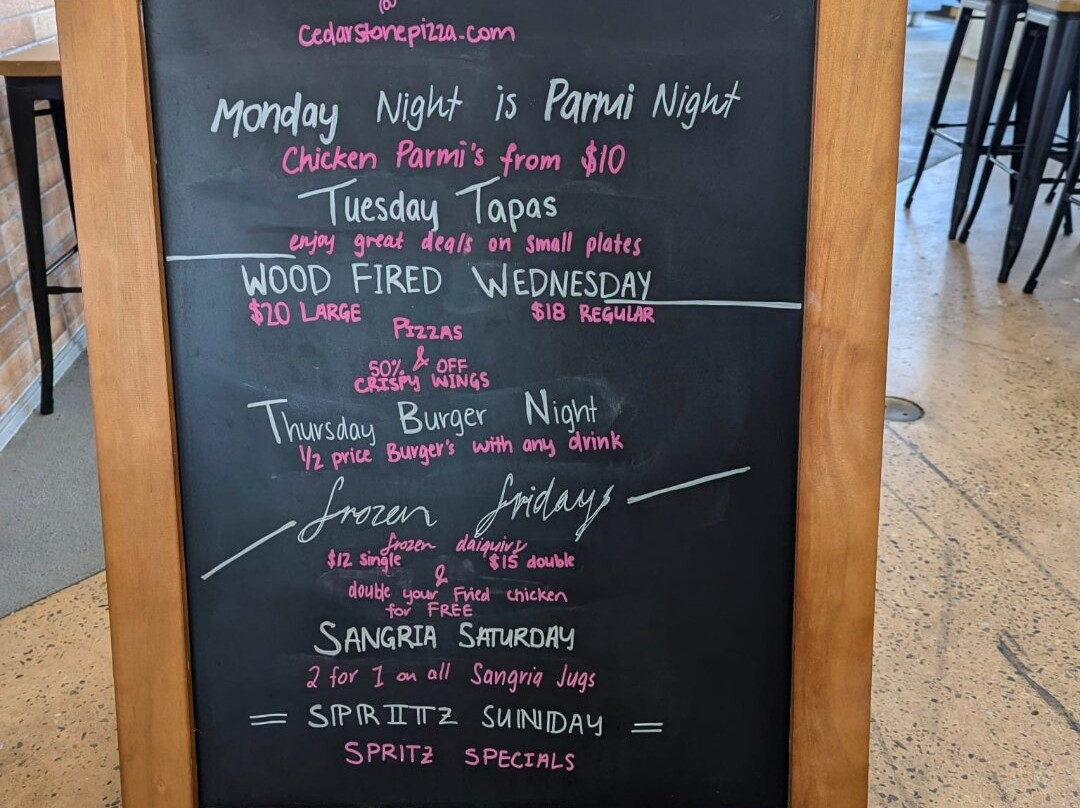 @
cedarstonepizza.com
Monday Night is Parmi Night
Chicken Parmi's from $10
Tuesday Tapas
enjoy great deals on small plates
WOOD FIRED WEDNESDAY
$20 LARGE $18 REGULAR
PIZZAS
&
50% OFF
CRISPY WINGS
Thursday Burger Night
1/2 price Burger's with any drink
frozen fridays
frozen daiquiris
$12 single $15 double
&
double your Fried chicken
for FREE
SANGRIA SATURDAY
2 for 1 on all Sangria Jugs
= SPRITZ SUNDAY =
SPRITZ SPECIALS